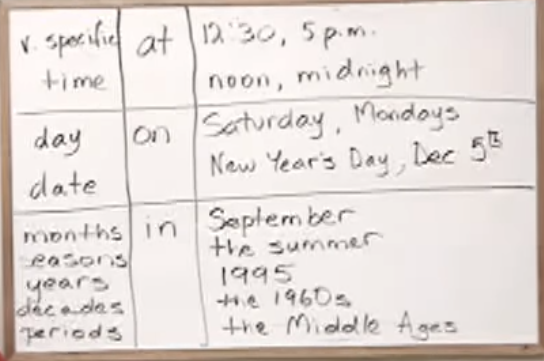 v. specific
time
at
12:30, 5 p.m.
noon, midnight
day
date
on
Saturday, Mondays
New Year's Day, Dec 5th
months
seasons
years
decades
periods
in
September
the summer
1995
the 1960s
the Middle Ages